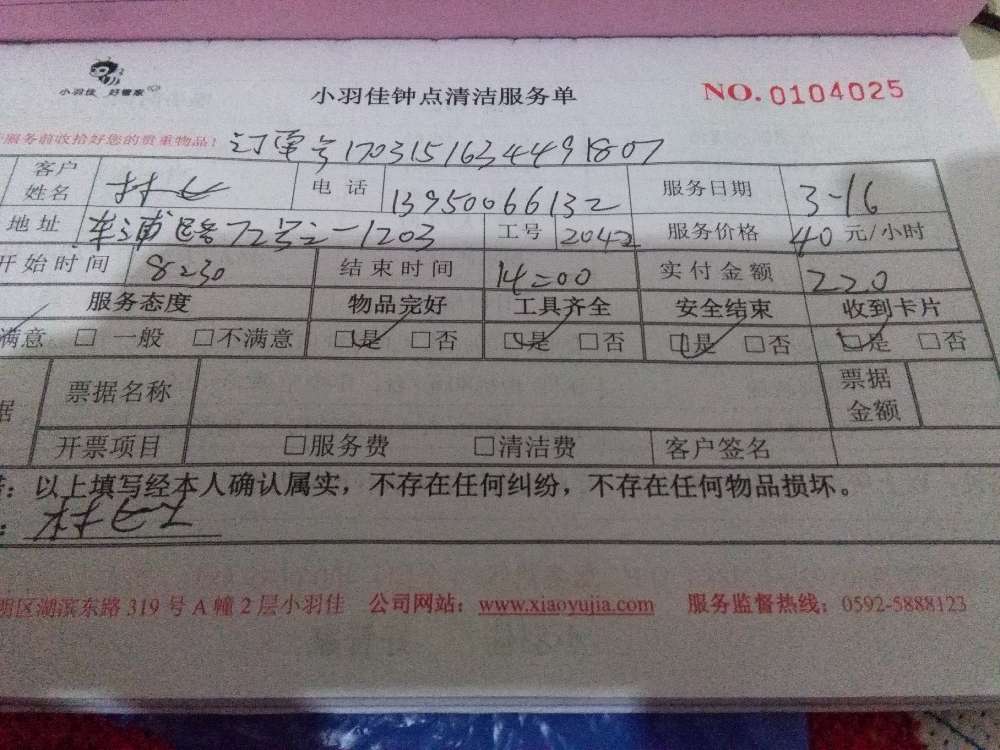 小羽佳 好管家
小羽佳钟点清洁服务单
NO.0104025
服务前收拾好您的贵重物品！ 订单号17031516344491807
客户姓名 电话 13950066132 服务日期 3-16
地址 东浦路72号之一1203 工号 2042 服务价格 40 元/小时
开始时间 8:30 结束时间 14:00 实付金额 220
服务态度 物品完好 工具齐全 安全结束 收到卡片
满意 □ 一般 □不满意 □是 □否 □是 □否 □是 □否 □是 □否
据 票据名称 票据金额
开票项目 □服务费 □清洁费 客户签名
：以上填写经本人确认属实，不存在任何纠纷，不存在任何物品损坏。
明区湖滨东路 319 号 A 幢 2 层小羽佳 公司网站：www.xiaoyujia.com 服务监督热线：0592-5888123